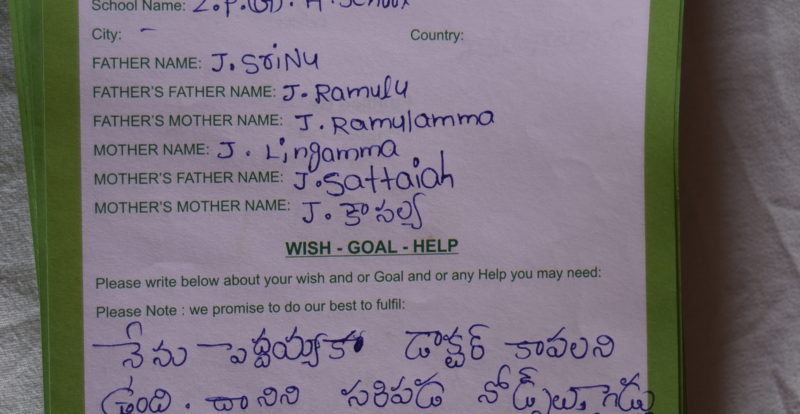 School Name: Z.P.(G). H. School
City: -
Country:
FATHER NAME: J. SRINU
FATHER'S FATHER NAME: J. Ramulu
FATHER'S MOTHER NAME: J. Ramulamma
MOTHER NAME: J. Lingamma
MOTHER'S FATHER NAME: J. Sattaiah
MOTHER'S MOTHER NAME: J. కౌసల్య
WISH - GOAL - HELP
Please write below about your wish and or Goal and or any Help you may need:
Please Note : we promise to do our best to fulfil:
నేను పెద్దయ్యాక డాక్టర్ కావలని
ఉంది. దానిని సరిపడ